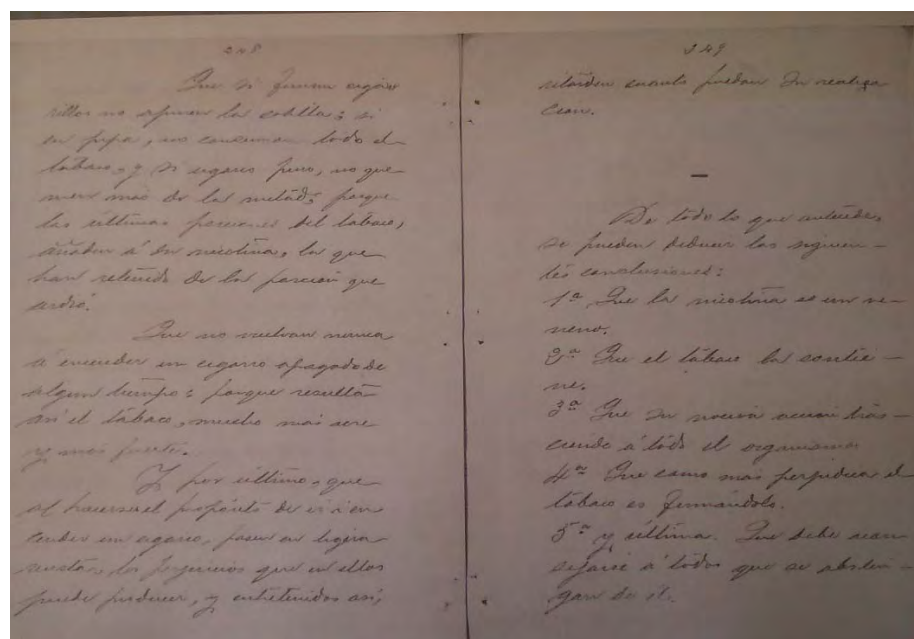 248
Que si fuman cigarrillos
rillos no apuren la colilla; si
en pipa, no consuman todo el
tabaco, y si cigarro puro, no que
men mas de la mitad, porque
las últimas porciones del tabaco,
añaden á su nicotina, la que
han retenido de la porcion que
ardió.
Que no vuelvan nunca
á encender un cigarro apagado de
algun tiempo; porque resulta
asi el tabaco, mucho mas acre
y mas fuerte.
Y por último, que
al hacerse el propósito de ir á en
cender un cigarro, pasen en ligera
los perjuicios que en ellos
puede producir, y entretenidos asi,
249
retarden cuanto puedan su realiza
cion.
De todo lo que antecede,
se pueden deducir las siguien-
tes conclusiones:
1ª Que la nicotina es un ve-
neno.
2ª Que el tabaco la contie-
ne.
3ª Que su nociva accion tras-
ciende á todo el organismo
4ª Que como mas perjudica el
tabaco es fumándolo.
5ª y última. Que debe acon
sejarse á todos que se absten-
gan de él.